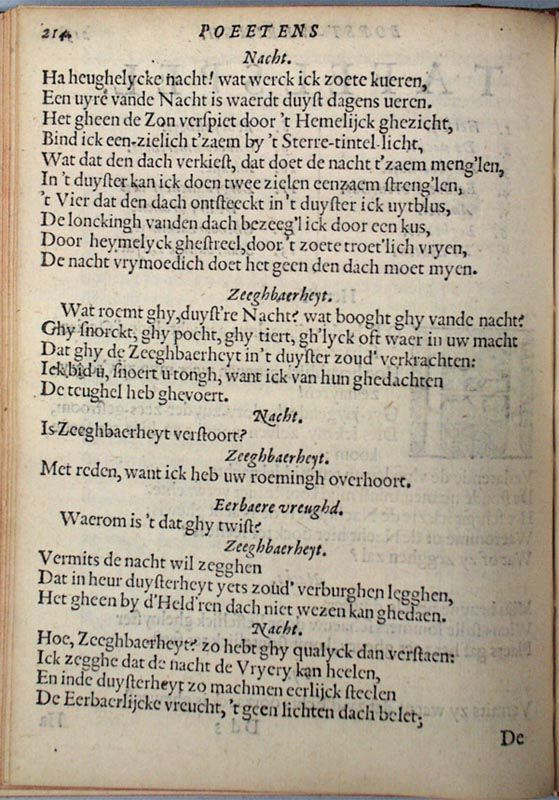 214. POEETENS
Nacht.
Ha heughelycke nacht! wat werck ick zoete kueren,
Een uyre vande Nacht is waerdt duyst dagens ueren.
Het gheen de Zon verspiet door 't Hemelijck ghezicht,
Bind ick een-zielich t'zaem by 't Sterre-tintel-licht,
Wat dat den dach verkiest, dat doet de nacht t'zaem meng'len,
In 't duyster kan ick doen twee zielen eenzaem streng'len,
't Vier dat den dach ontsteeckt in 't duyster ick uytblus,
De lonckingh vanden dach bezeeg'l ick door een kus,
Door heymelyck ghestreel, door 't zoete troet'lich vryen,
De nacht vrymoedich doet het geen den dach moet myen.
Zeeghbaerheyt.
Wat roemt ghy, duyst're Nacht? wat booght ghy vande nacht?
Ghy snorckt, ghy pocht, ghy tiert, gh'lyck oft waer in uw macht
Dat ghy de Zeeghbaerheyt in 't duyster zoud' verkrachten:
Ick bid u, snoert u tongh, want ick van hun ghedachten
De teughel heb ghevoert.
Nacht.
Is Zeeghbaerheyt verstoort?
Zeeghbaerheyt.
Met reden, want ick heb uw roemingh overhoort.
Eerbaere vreughd.
Waerom is 't dat ghy twist?
Zeeghbaerheyt.
Vermits de nacht wil zegghen
Dat in heur duysterheyt yets zoud' verburghen legghen,
Het gheen by d'Held'ren dach niet wezen kan ghedaen.
Nacht.
Hoe, Zeeghbaerheyt? zo hebt ghy qualyck dan verstaen:
Ick zegghe dat de nacht de Vryery kan heelen,
En inde duysterheyt zo machmen eerlijck steelen
De Eerbaerlijcke vreucht, 't geen lichten dach belet;
De